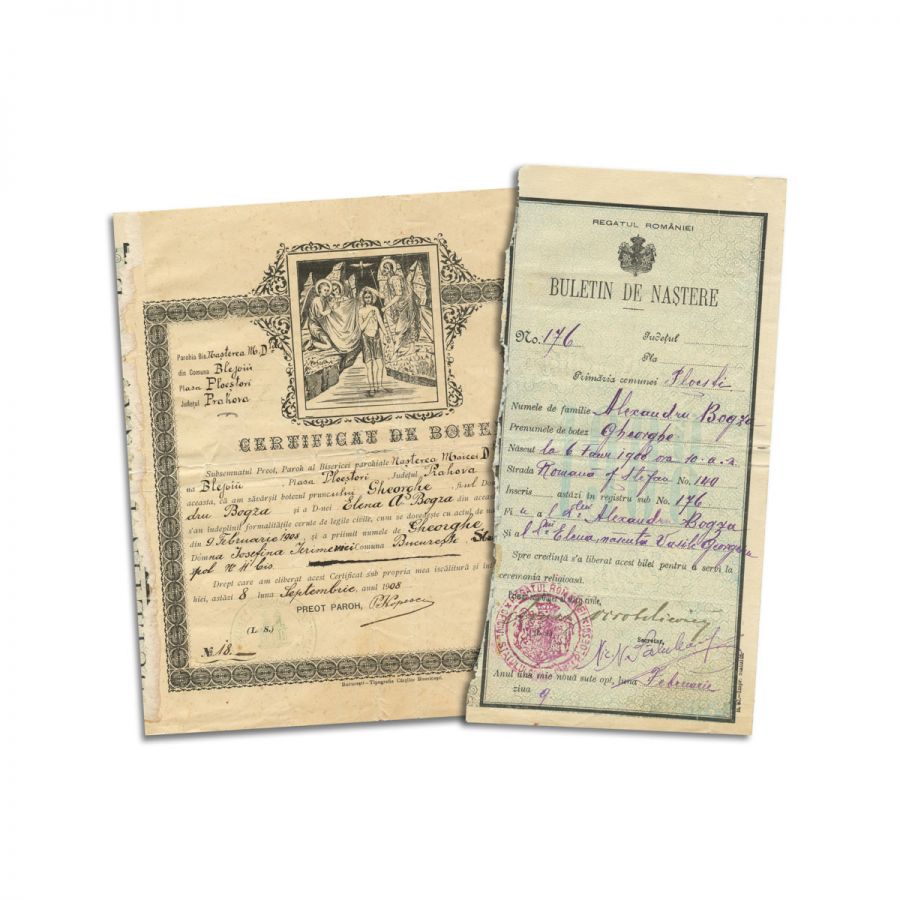 Parohia Bis. Nașterea M. D
din Comuna Blejoiu
Plasa Ploestori
Județul Prahova
CERTIFICAT DE BOTE
Subsemnatul Preot, Paroh al Bisericei parohiale Nașterea Maicei D
na Blejoiu, Plasa Ploestori Județul Prahova
aceasta, că am săvârșit botezul pruncului Gheorghe, fiul Do
dru Bogza și a D-nei Elena A. Bogza din aceas
s'au îndeplinit formalitățile cerute de legile civile, cum se dovedește cu actul de na
din 9 Februarie 1908, și a priimit numele de Gheorghe
Domna Iosefina Comuna București
pol No 4 bis
Drept care am eliberat acest Certificat sub propria mea iscălitură și în
hiei, astăzi 8 luna Septembrie, anul 1908
PREOT PAROH, Popescu
(L. S.)
No 18
București - Tipografia Cărților Bisericești.
REGATUL ROMÂNIEI
BULETIN DE NAȘTERE
No. 176 Județul
Pla
Primăria comunei Ploesti
Numele de familie Alexandru Bogza
Prenumele de botez Gheorghe
Născut la 6 Faur 1908 ora 10 a.
Strada Romana No 140
Inscris astăzi în registru sub No. 176
Fiu al Alexandru Bogza
Și al Elena, nascuta Vasile Georgescu
Spre credință s'a liberat acest bilet pentru a servi la
ceremonia religioasă.
REGATUL ROMÂNIEI
Secretar,
Anul una mie nouă sute opt, luna Februarie
ziua 9